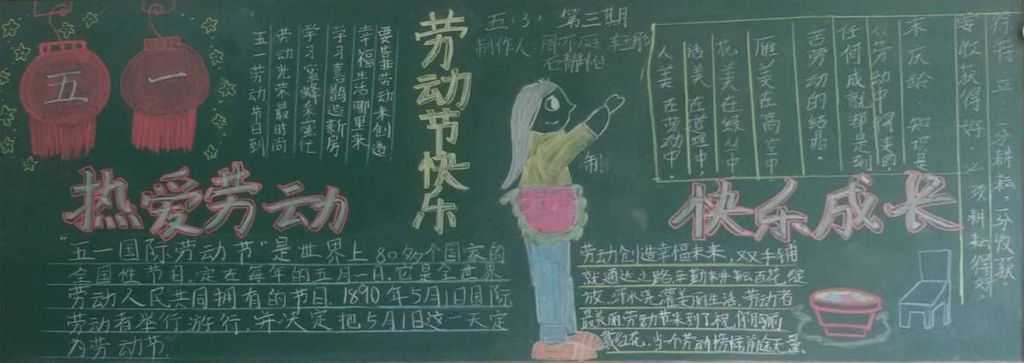 五一
五一劳动节日到
劳动光荣最时尚
学习蜜蜂不乱忙
学习喜鹊造新房
幸福生活哪里来
要靠劳动来创造
劳动节快乐
五(3) 第三期
制作人
雁美在高空中
花美在绿丛中
话美在道理中
人美在劳动中
宋庆龄:知识是
从劳动中得来的
任何成就都是刻
苦劳动的结晶。
一分耕耘,一分收获
要收获得好,必须耕耘得好
热爱劳动
快乐成长
"五一国际劳动节"是世界上80多个国家的
全国性节日。定在每年的五月一日。它是全世界
劳动人民共同拥有的节日。1890年5月1日国际
劳动者举行游行,并决定把5月1日这一天定
为劳动节
劳动创造幸福未来,双手铺
就通达之路辛勤耕耘百花绽
放,汗水浇灌美丽生活,劳动者
最美丽劳动节来到了祝你胸前
戴红花,当个劳动榜样前庭无量